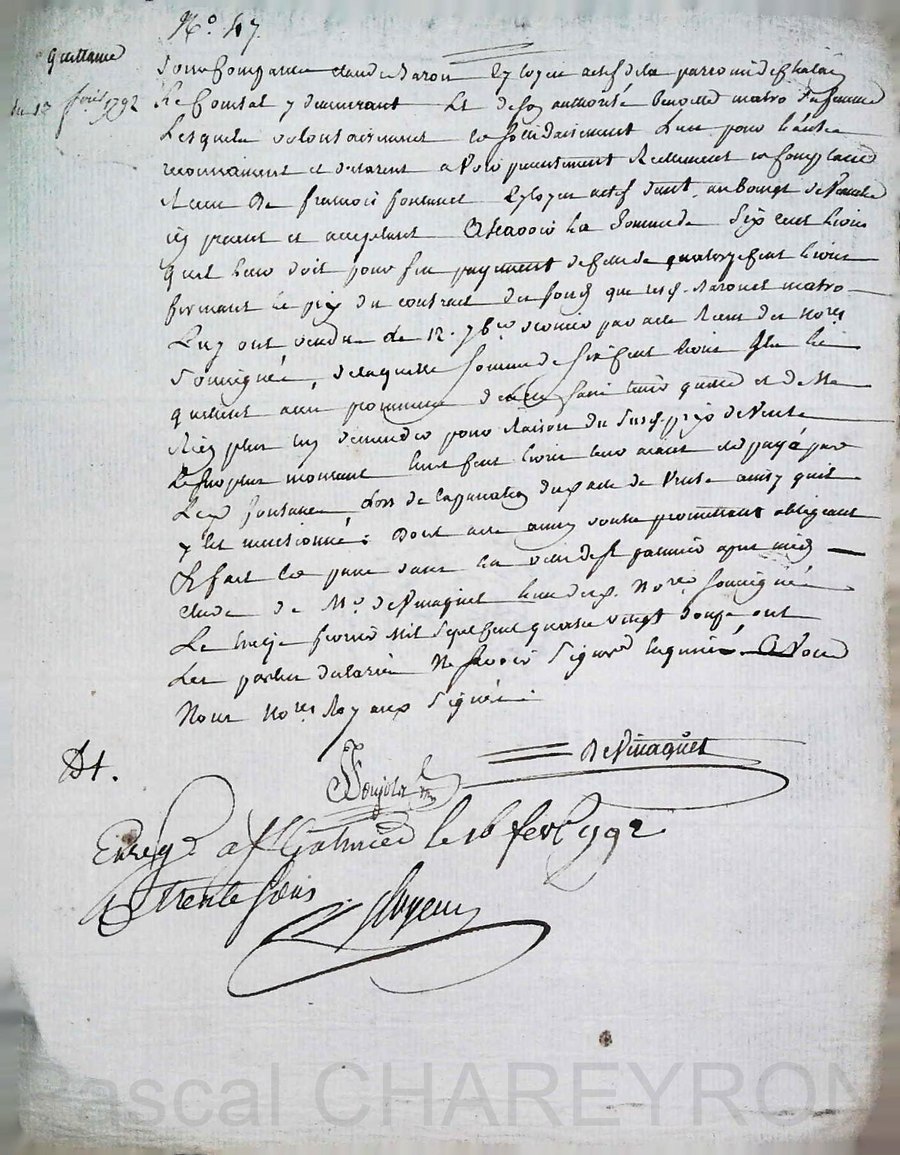 N.° 47.
Quittance
du 13 fevr 1792
Sont Comparus claude Baron Cytoyen actif de la paroisse de Chalain
Le Comtal y demeurant Et de son authorité Benoitte matro sa femme
Lesquels volontairement et solidairement L'un pour l'autre
reconnaissent et declarent avoir presentement Reellement et comptant
Receu De francois fontanet Cytoyen actif dud. au Bourg de
icy present et acceptant A Scavoir La Somme de Six cent livres
quil leur doit pour fin payement de celle de quatorze cent livres
formant le prix du contract des fonds que lesd. Baron et matro
Luy ont vendu le 12. 7bre dernier par acte Receu des No.res
Soussignés, de laquelle Somme de Six Cent livres Ils le
quittent avec promesse de l'en faire tenir quitte et de ne
Rien plus luy demander pour Raison du Susd. prix de Vente
Le surplus montant huit Cent livres leur aiant été payé par
Led. fontanet Lors de la passation dud. acte de Vente ainsy quil
y Est mentionné; Dont acte ainsy voulu promettant obligeant
Et fait et passé dans la ville de St galmier apres midy
Etude de M.e deVinaquet l'un desd. No.res Soussignés
Le treize fevrier Mil Sept Cent quatre vingt douze ont
Les parties declaré Ne Scavoir Signer Enquis. Avons
Nous No.res Royaux Signés.
Bt.
deVinaquet
Enreg.é a St Galmier le 16 fevr. 1792
R trente Sous